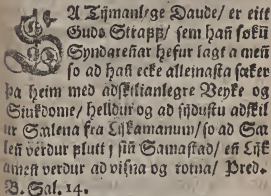 SA Tijmanlege Daude/ er eitt
Guds Straff/ sem hañ søkū
Syndareñar hefur lagt a meñ
so ad hañ ecke alleinasta sæker
þa heim med adskilianlegre Veyke og
Siukdome/ helldur og ad sijdustu adskil
ur Sælena fra Lijkamanum/ so ad Sæ
leñ verdur plutt j siñ Samastad/ eñ Lijk
ameñ verdur ad visna og rotna/ Pred.
B. Sal. 14.